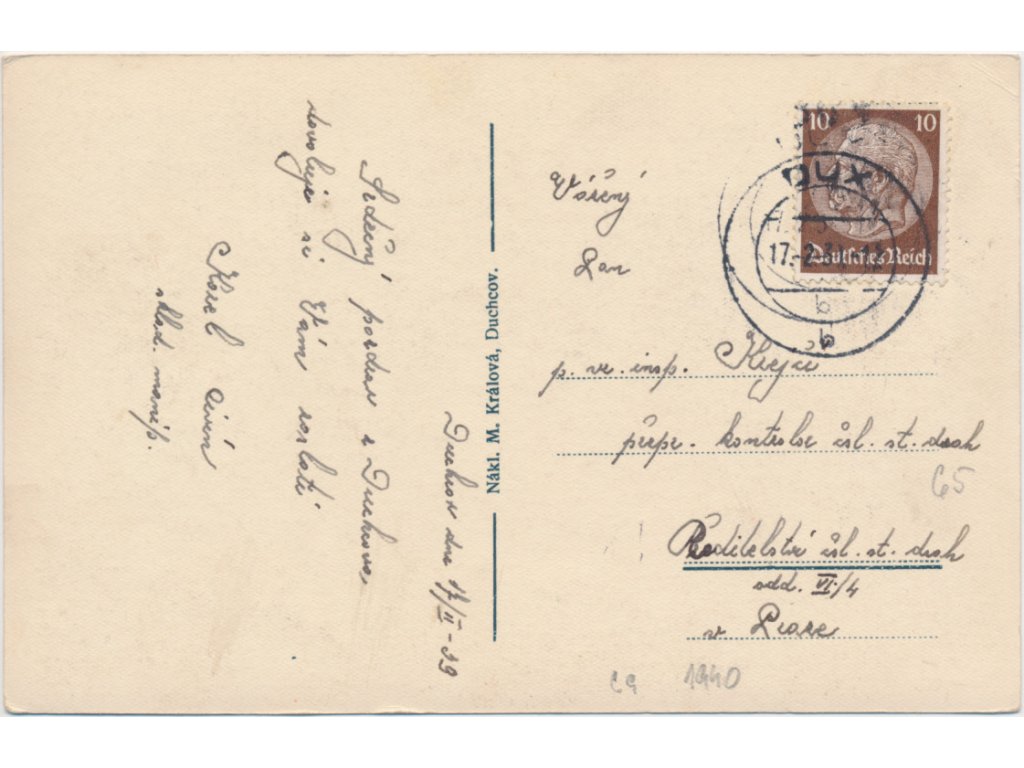 Duchcov dne 17/II-39
Srdečný pozdrav z Duchcova
dovoluje si Vám zaslati
Karel
sklad. manip.
Nákl. M. Králová, Duchcov.
10 10
Deutsches Reich
DUX
17.-2.39
b
b
Vážený
Pan
p. vr. insp. Krejčí
přepr. kontrolor čsl. st. drah
65
Ředitelství čsl. st. drah
odd. VI/4
v Praze
1940